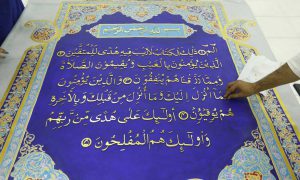 بسم الله الرحمن الرحيم
الم ذلك الكتاب لا ريب فيه هدى للمتقين
الذين يؤمنون بالغيب ويقيمون الصلاة
ومما رزقناهم ينفقون والذين يؤمنون
بما أنزل إليك وما أنزل من قبلك وبالآخرة
هم يوقنون أولئك على هدى من ربهم
وأولئك هم المفلحون